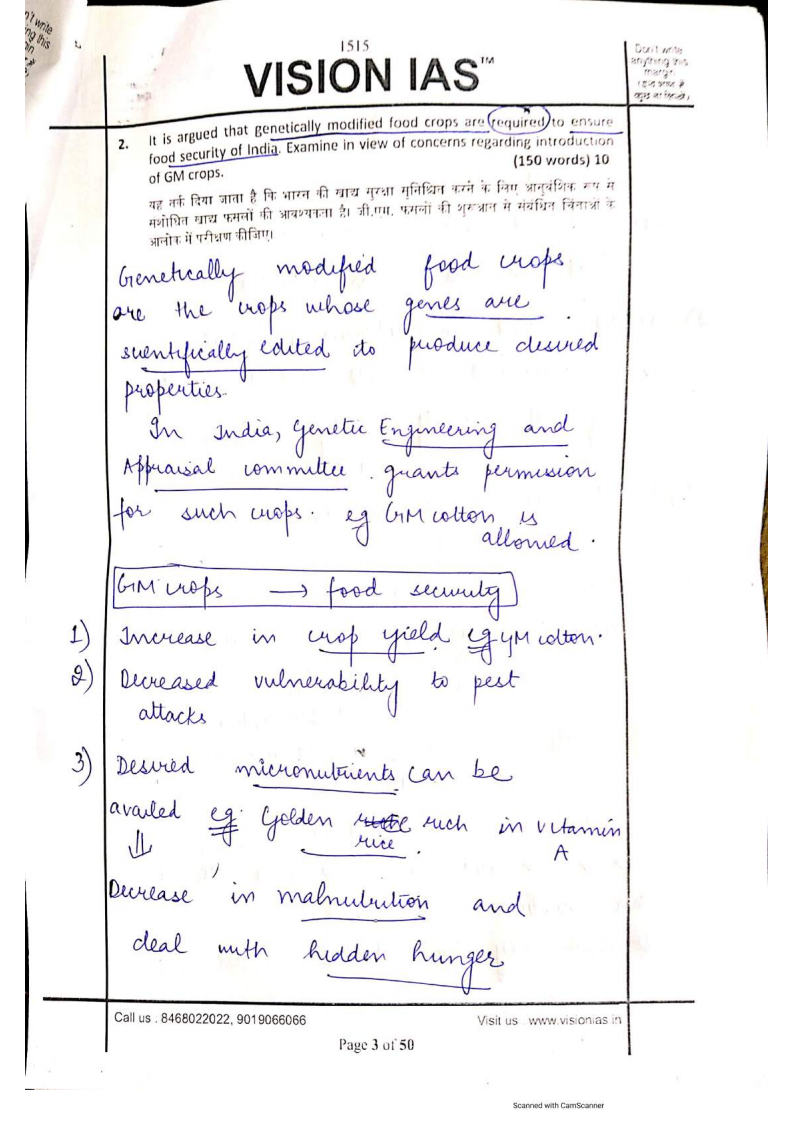 1515
VISION IAS™
Don't write
anything this
margin
2. It is argued that genetically modified food crops are required to ensure
food security of India. Examine in view of concerns regarding introduction
of GM crops.
(150 words) 10
यह तर्क दिया जाता है कि भारत की खाद्य सुरक्षा सुनिश्चित करने के लिए आनुवंशिक रूप से
संशोधित खाद्य फसलों की आवश्यकता है। जी.एम. फसलों की शुरुआत से संबंधित चिंताओं के
आलोक में परीक्षण कीजिए।
Genetically modified food crops
are the crops whose genes are
scientifically edited to produce desired
properties.
In India, Genetic Engineering and
Appraisal committee grants permission
for such crops. eg GM cotton is
allowed.
GM crops → food security
1) Increase in crop yield eg GM cotton.
2) Decreased vulnerability to pest
attacks
3) Desired micronutrients can be
availed eg. Golden rice rich in vitamin
A
⇓
Decrease in malnutrition and
deal with hidden hunger
Call us : 8468022022, 9019066066
Visit us : www.visionias.in
Page 3 of 50
Scanned with CamScanner